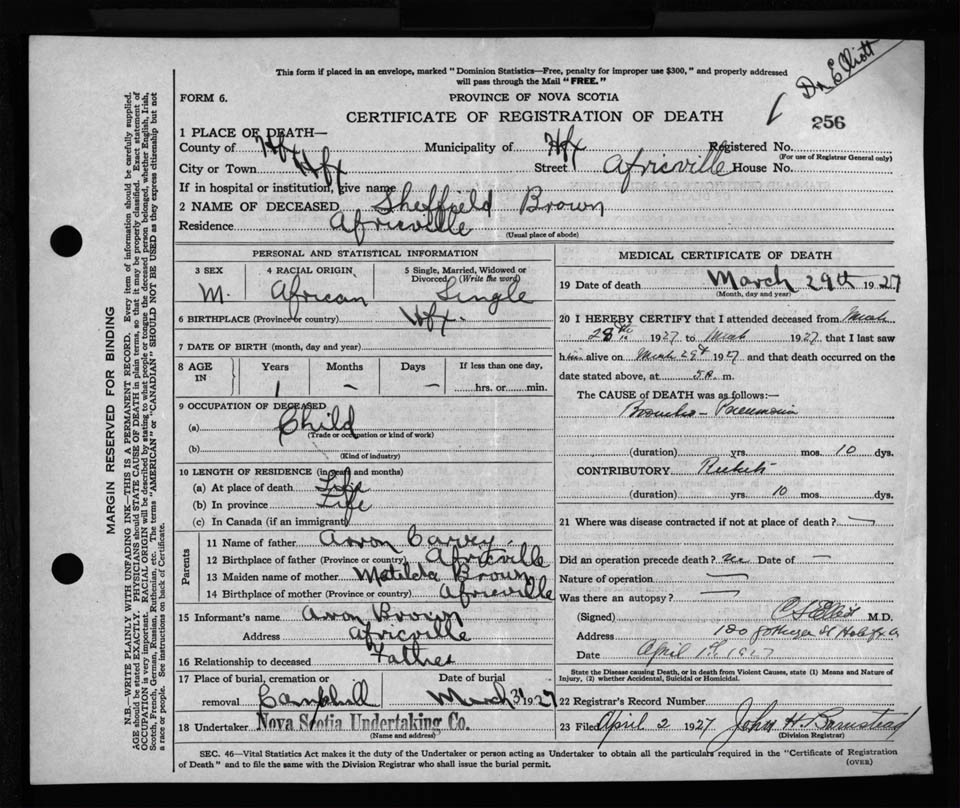 Dr Elliott
This form if placed in an envelope, marked "Dominion Statistics—Free, penalty for improper use $300," and properly addressed
will pass through the Mail "FREE."
FORM 6.
PROVINCE OF NOVA SCOTIA
CERTIFICATE OF REGISTRATION OF DEATH
256
1 PLACE OF DEATH—
County of Hfx Municipality of Hfx Registered No.
(For use of Registrar General only)
City or Town Hfx Street Africville House No.
If in hospital or institution, give name
2 NAME OF DECEASED Sheffield Brown
Residence Africville
(Usual place of abode)
PERSONAL AND STATISTICAL INFORMATION
3 SEX 4 RACIAL ORIGIN 5 Single, Married, Widowed or
Divorced (Write the word)
M. African Single
6 BIRTHPLACE (Province or country) Hfx.
7 DATE OF BIRTH (month, day and year)
8 AGE IN Years Months Days If less than one day,
1 — — hrs. or min.
9 OCCUPATION OF DECEASED
(a) Child
(Trade or occupation or kind of work)
(b)
(Kind of industry)
10 LENGTH OF RESIDENCE (in years and months)
(a) At place of death Life
(b) In province Life
(c) In Canada (if an immigrant)
Parents
11 Name of father Arron Carvey
12 Birthplace of father (Province or country) Africville
13 Maiden name of mother Matilda Brown
14 Birthplace of mother (Province or country) Africville
15 Informant's name Aron Brown
Address Africville
16 Relationship to deceased Father
17 Place of burial, cremation or Date of burial
removal Camphill March 31 1927
18 Undertaker Nova Scotia Undertaking Co.
(Name and address)
MEDICAL CERTIFICATE OF DEATH
19 Date of death March 29th 1927
(Month, day and year)
20 I HEREBY CERTIFY that I attended deceased from March
28th 1927 to March 1927, that I last saw
him alive on March 29th 1927 and that death occurred on the
date stated above, at 5 a. m.
The CAUSE of DEATH was as follows:—
Broncho-Pneumonia
(duration) yrs. mos. 10 dys.
CONTRIBUTORY Rickets
(duration) yrs. 10 mos. dys.
21 Where was disease contracted if not at place of death? —
Did an operation precede death? no Date of —
Nature of operation —
Was there an autopsy? —
(Signed) M.D.
Address 180 Gottingen St Halifax
Date April 1st 1927
State the Disease causing Death, or in death from Violent Causes, state (1) Means and Nature of
Injury, (2) whether Accidental, Suicidal or Homicidal.
22 Registrar's Record Number
23 Filed April 2 1927 John H. Barnstead
(Division Registrar)
SEC. 46—Vital Statistics Act makes it the duty of the Undertaker or person acting as Undertaker to obtain all the particulars required in the "Certificate of Registration
of Death" and to file the same with the Division Registrar who shall issue the burial permit.
(OVER)
MARGIN RESERVED FOR BINDING
N.B.—WRITE PLAINLY WITH UNFADING INK—THIS IS A PERMANENT RECORD. Every item of information should be carefully supplied.
AGE should be stated EXACTLY. PHYSICIANS should STATE CAUSE OF DEATH in plain terms, so that it may be properly classified. Exact statement of
OCCUPATION is very important. RACIAL ORIGIN will be described by stating to what people or tongue the deceased person belonged, whether English, Irish,
Scotch, French, German, Russian, Ruthenian, etc. The terms "AMERICAN" or "CANADIAN" SHOULD NOT BE USED as they express citizenship but not
a race or people. See instructions on back of Certificate.